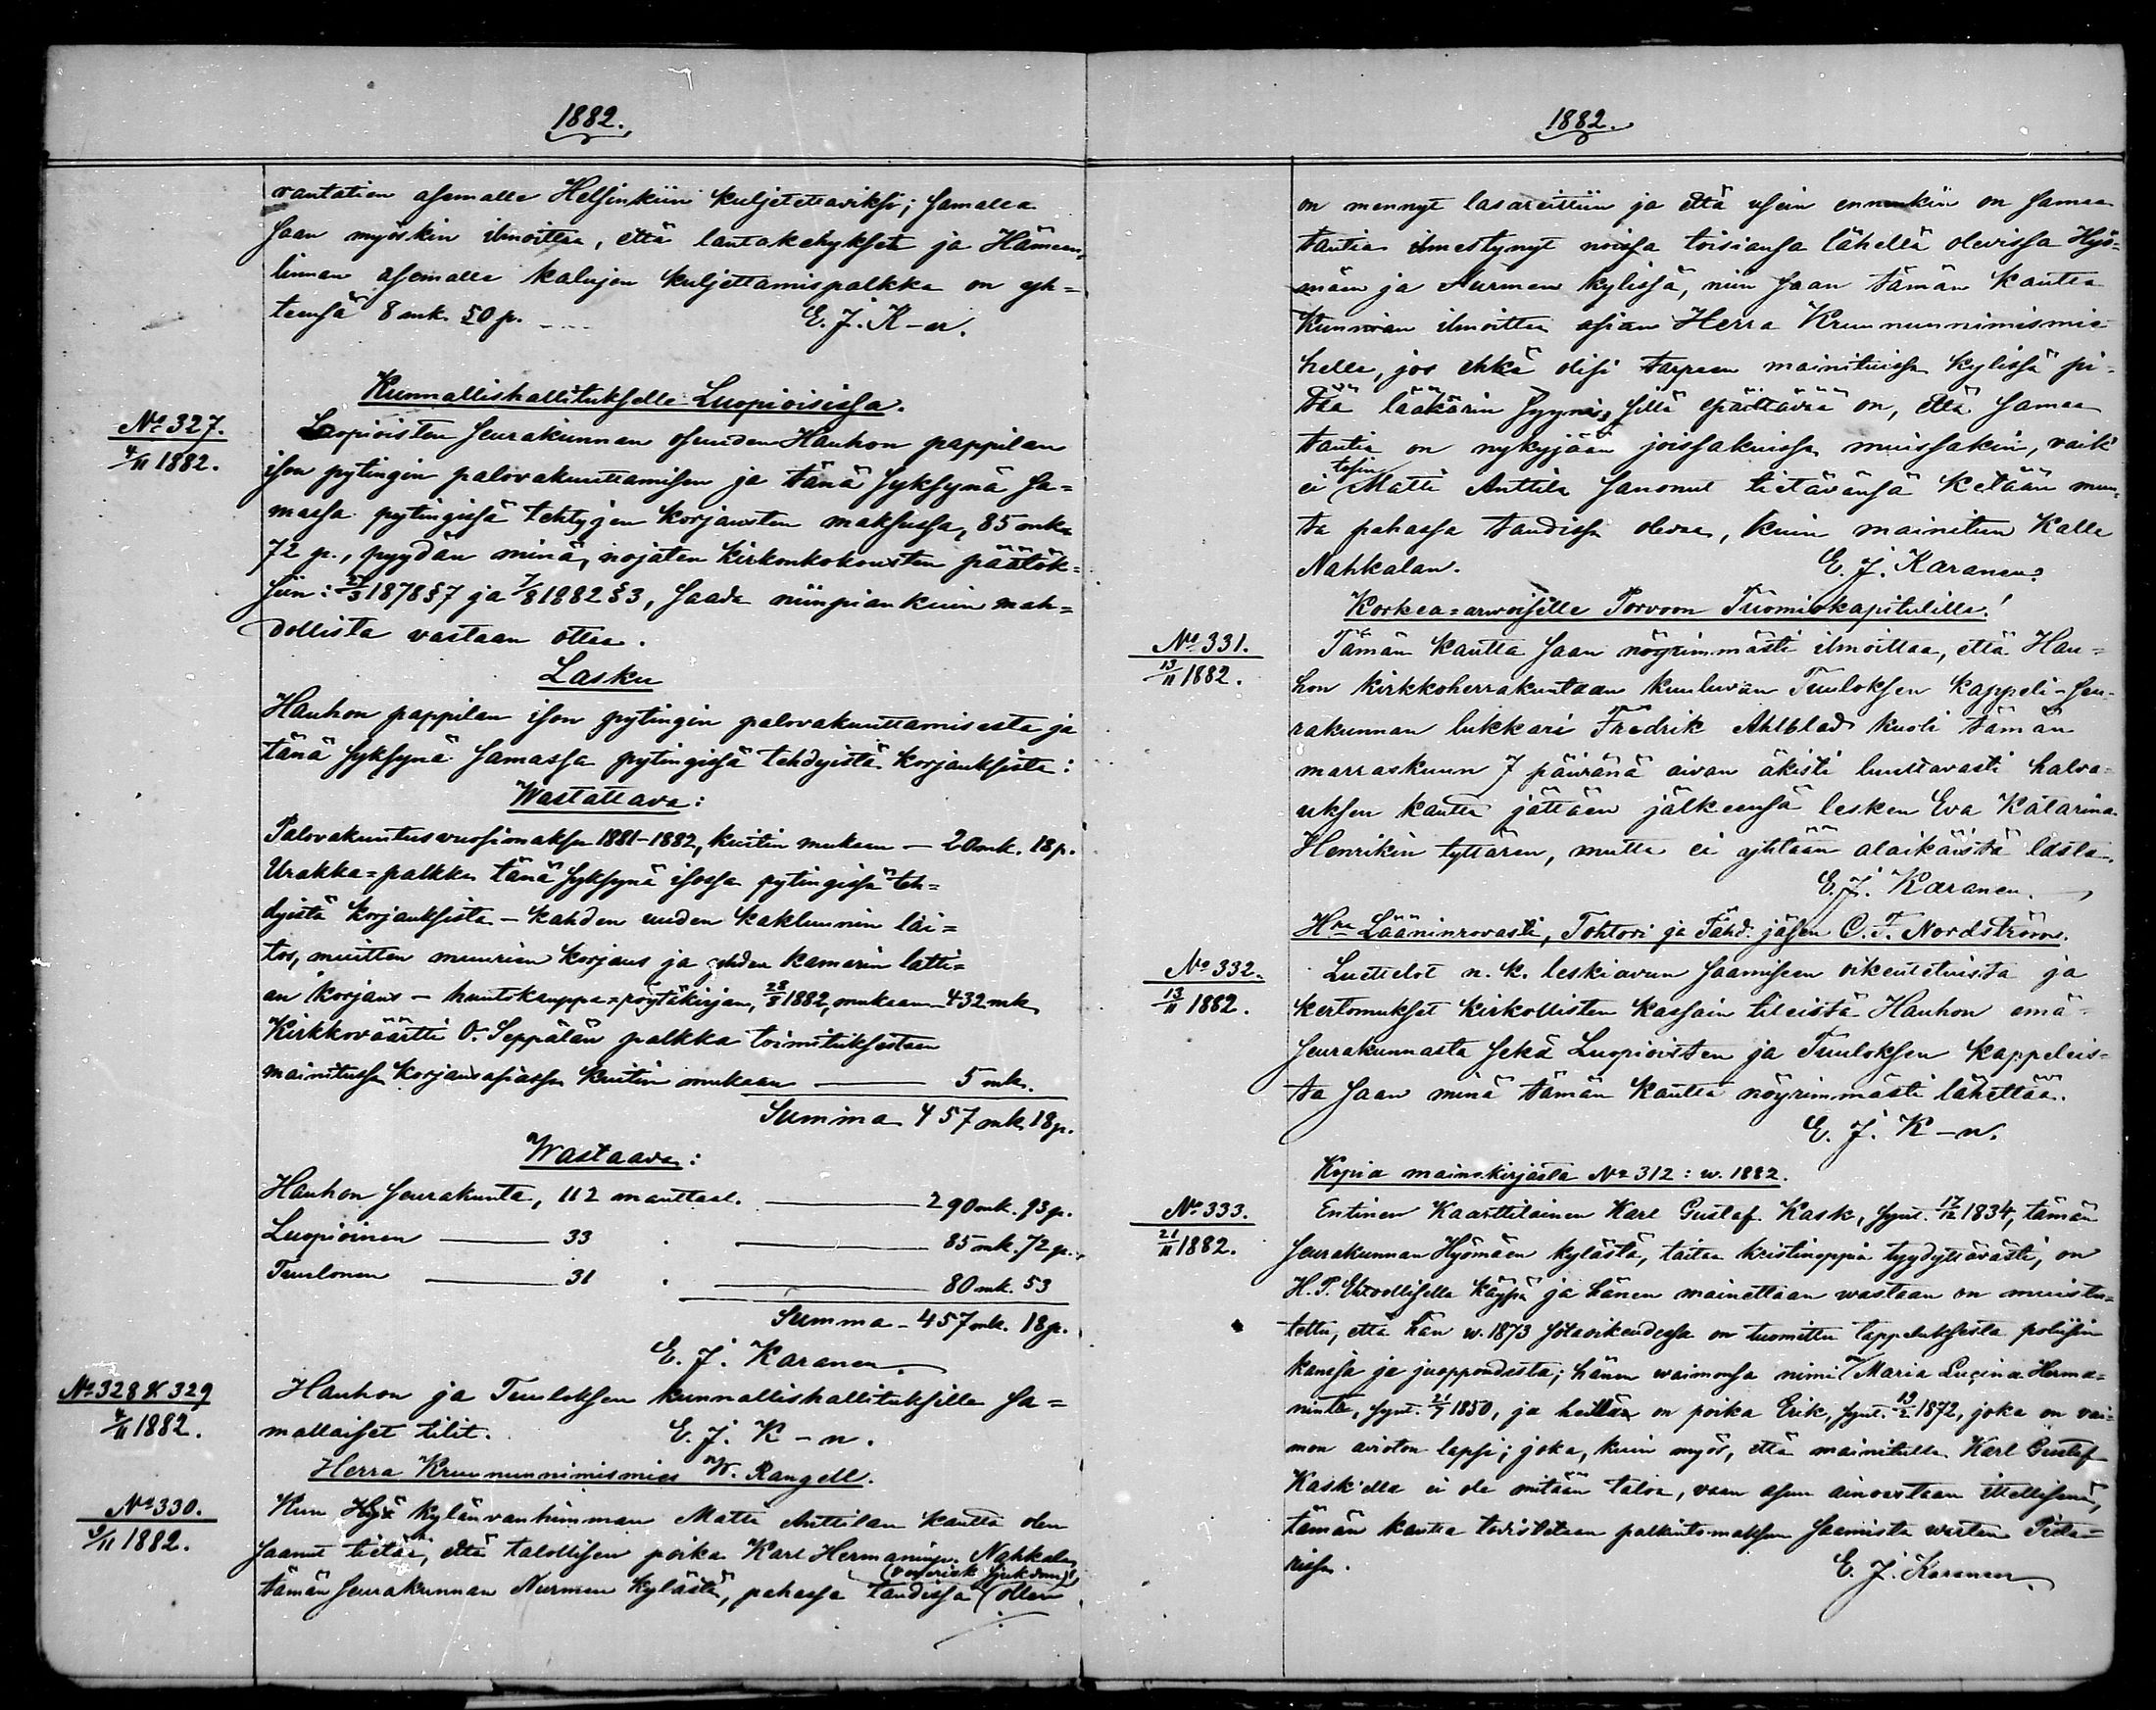 1882.
rautatien asemalle Helsinkiin kuljetettaviksi; samalla
saan myöskin ilmoittaa, että lautakehykset ja Hämeen-
linnan asemalle kalujen kuljettamispalkka on yh=
teensä 8 mk. 50 p. E. J. K-n.
Kunnallishallitukselle Luopioisissa.
No 327.
4/11 1882.
Luopioisten seurakunnan osuuden Hauhon pappilan
ison pytingin palovakuuttamisen ja tänä syksynä sa=
massa pytingissä tehtyjen korjausten maksussa, 85 mka
72 p., pyydän minä, nojaten kirkonkokousten päätök=
siin: 27/3 1878 § 7 ja 7/8 1882 § 3, saada niinpian kuin mah=
dollista vastaan ottaa.
Lasku
Hauhon pappilan ison pytingin palovakuuttamisesta ja
tänä syksynä samassa pytingissä tehdyistä korjauksista:
Wastattava:
Palovakuutusvuosimaksu 1881-1882, kuitin mukaan — 20 mk. 18 p.
Urakka=palkka tänä syksynä isossa pytingissä teh=
dyistä korjauksista — kahden uuden kakluunin lai=
tos, muitten muurien korjaus ja yhden kamarin latti=
an korjaus — huutokauppa=pöytäkirjan, 28/8 1882, mukaan — 432 mk
Kirkkoväärtti O. Seppälän palkka toimituksestaan
mainitussa korjausasiassa kuitin mukaan — 5 mk.
Summa 457 mk 18 p.
Wastaava:
Hauhon seurakunta, 112 manttaal. — 290 mk. 93 p.
Luopioinen — 33 — 85 mk. 72 p.
Tuulonen — 31 — 80 mk. 53
Summa — 457 mk. 18 p.
E. J. Karanen.
No 328 & 329
4/11 1882.
Hauhon ja Tuuloksen kunnallishallituksille sa=
mallaiset tilit. E. J. K-n.
Herra Kruununnimismies W. Rangell.
No 330.
9/11 1882.
Kun kylänvanhimman Matti Anttilan kautta olen
saanut tietää, että talollisen poika Karl Hermaninp. Nahkala
(venerisk sjukdom)
tämän seurakunnan Nurmen kylästä, pahassa taudissa ollen
1882.
on mennyt lasareittiin ja että usein ennenkin on samaa
tautia ilmestynyt noissa toisiansa lähellä olevissa Hyö=
mäen ja Nurmen kylissä, niin saan tämän kautta
kunnian ilmoittaa asian Herra Kruununnimismie-
helle, jos ehkä olisi tarpeen mainituissa kylissä pi-
tää lääkärin syyniä, sillä epäiltävää on, että samaa
tautia on nykyjään joissakuissa muissakin, vaik'
tosin
ei Matti Anttila sanonut tietävänsä ketään muu-
ta pahassa taudissa olevaa, kuin mainitun Kalle
Nahkalan. E. J. Karanen.
Korkea=arvoisille Porvoon Tuomiokapitulille!
No 331.
13/11 1882.
Tämän kautta saan nöyrimmästi ilmoittaa, että Hau=
hon kirkkoherrakuntaan kuuluvan Tuuloksen kappeli-seu-
rakunnan lukkari Fredrik Ahlblad kuoli tämän
marraskuun 7 päivänä aivan äkisti luultavasti halva-
uksen kautta jättäen jälkeensä lesken Eva Katarina
Henrikin tyttären, mutta ei yhtään alaikäistä lasta.
E. J. Karanen.
Hra Lääninrovasti, Tohtori ja Tähd. jäsen C. F. Nordström.
No 332.
13/11 1882.
Luettelot n. k. leskiavun saamiseen oikeutetuista ja
kertomukset kirkollisten kassain tileistä Hauhon emä-
seurakunnasta sekä Luopioisten ja Tuuloksen kappeleis-
ta saan minä tämän kautta nöyrimmästi lähettää.
E. J. K-n.
Kopia mainekirjasta No 312: w. 1882.
No 333.
21/11 1882.
Entinen Kaarttilainen Karl Gustaf Kask, synt. 17/12 1834, tämän
seurakunnan Hyömäen kylästä, taitaa kristinoppia tyydyttävästi, on
H. P. Ehtoollisella käypä ja hänen mainettaan wastaan on muistu=
tettu, että hän w. 1873 sotaoikeudessa on tuomittu tappeluksesta poliisin
kanssa ja juoppoudesta; hänen waimonsa nimi on Maria Lucina Herma=
nintr, synt. 21/7 1850, ja heillä on poika Erik, synt. 19/2 1872, joka on vai-
mon avioton lapsi; joka, kuin myös, että mainitulla Karl Gustaf
Kask'ella ei ole mitään taloa, vaan asuu ainoastaan itellisenä,
tämän kautta todistetaan palkintomaksun saamista warten Pieta-
rissa. E. J. Karanen.